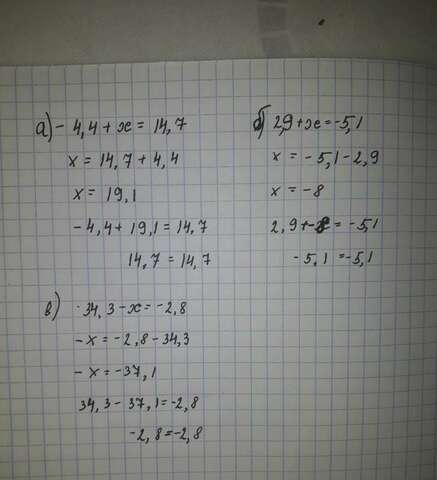 а) - 4,4 + x = 14,7
x = 14,7 + 4,4
x = 19,1
- 4,4 + 19,1 = 14,7
14,7 = 14,7
б) 2,9 + x = -5,1
x = - 5,1 - 2,9
x = -8
2,9 + -8 = -5,1
-5,1 = -5,1
в) 34,3 - x = -2,8
-x = -2,8 - 34,3
-x = -37,1
34,3 - 37,1 = -2,8
-2,8 = -2,8